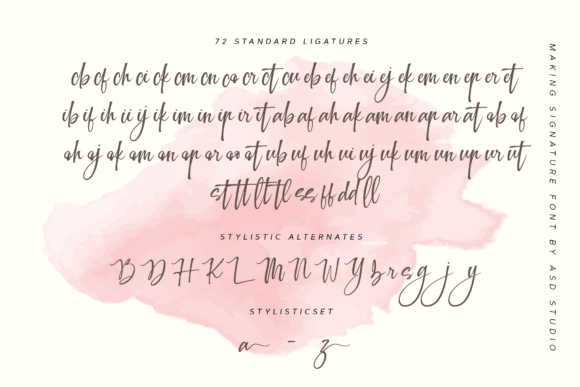 72 STANDARD LIGATURES
cb cf ch ci ck cm cn co cr ct cu eb ef eh ei ej ek em en ep er et
ib if ih ii ij ik im in ip ir it ab af ah ak am an ap ar at ob of
oh oj ok om on op or oo ot ub uf uh ui uj uk um un up ur ut
st tt lt tl ss ff dd ll
STYLISTIC ALTERNATES
B D H K L M N W Y b r s g j y
STYLISTICSET
a - z
MAKING SIGNATURE FONT BY ASD STUDIO